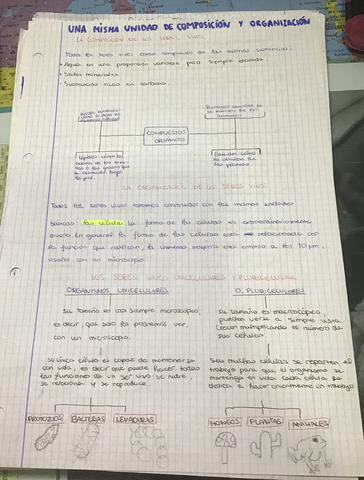 UNA MISMA UNIDAD DE COMPOSICIÓN Y ORGANIZACIÓN
LA COMPOSICIÓN DE LOS SERES VIVOS
Todos los seres vivos están compuestos de las mismas sustancias:
• Agua en una proporción variable pero siempre elevada.
• Sales minerales
• Sustancias ricas en carbono
COMPUESTOS
ORGÁNICOS
LA ORGANIZACIÓN DE LOS SERES VIVOS
Todos los seres vivos estamos construidos con las mismas unidades
básicas: las células. La forma de las células es extraordinariamente
diversa. En general la forma de las células está relacionada con
la función que realizan, la inmensa mayoría está entorno a los 10 µm,
visible con un microscopio.
LOS SERES VIVOS UNICELULARES Y PLURICELULARES
ORGANISMOS UNICELULARES
Su tamaño es casi siempre microscópico,
es decir, que solo los podremos ver,
con un microscopio.
Su única célula es capaz de mantenerse
con vida, es decir que puede hacer todas
las funciones de un ser vivo se nutre,
se relaciona y se reproduce.
PROTOZOOS BACTERIAS LEVADURAS
O. PLURICELULARES
Su tamaño es macroscópico,
pueden verse a simple vista.
Crecen multiplicando el número de
sus células
Sus muchas células se reparten el
trabajo para que el organismo se
mantenga en vida. Cada célula se
dedica a hacer únicamente un trabajo
HONGOS PLANTAS ANIMALES